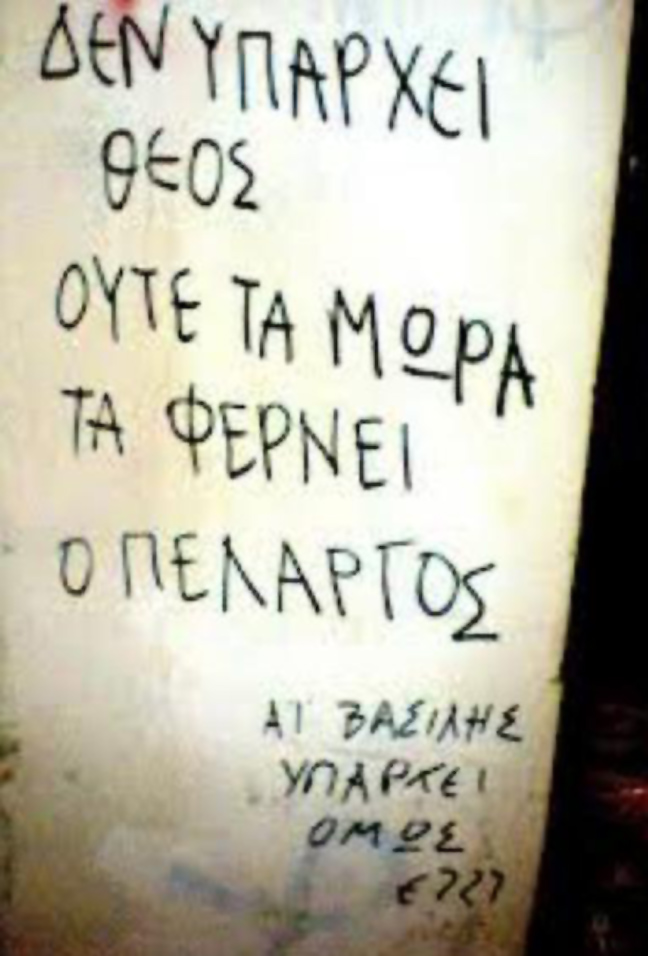 ΔΕΝ ΥΠΑΡΧΕΙ
ΘΕΟΣ
ΟΥΤΕ ΤΑ ΜΩΡΑ
ΤΑ ΦΕΡΝΕΙ
Ο ΠΕΛΑΡΓΟΣ
ΑΪ ΒΑΣΙΛΗΣ
ΥΠΑΡΧΕΙ
ΟΜΩΣ
Ε???